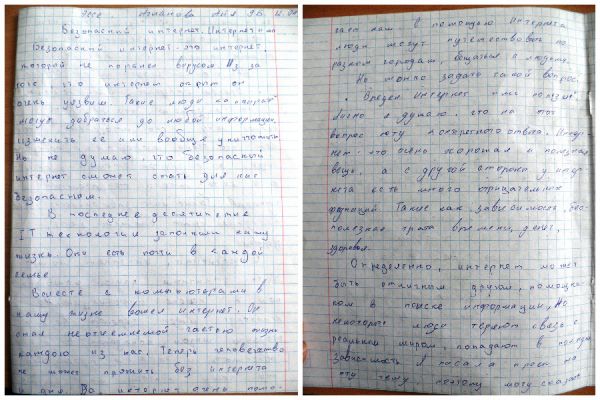 Эссе Аманова Айя 9Б
Безопасный интернет. Интернет или
Безопасный интернет - это интернет,
который не поражен вирусом. Из за
того что интернет открыт он
очень уязвим. Такие люди
могут добраться до любой информации,
изменить её или вообще уничтожить
Но не думаю, что безопасный
интернет сможет стать для нас
безопасным.
В последнее десятилетие
IT технологии заполнили нашу
жизнь. Они есть почти в каждой
семье
Вместе с компьютерами в
нашу жизнь вошел интернет. Он
стал неотъемлемой частью жизни
каждого из нас. Теперь человечество
не может прожить без интернета
и дня. Во интернет очень помо-
гает нам с помощью Интернета
люди могут путешествовать по
разным городам, общаться с людьми.
Но можно задать такой вопрос.
Вреден интернет или полезен.
Лично я думаю, что на этот
вопрос нету конкретного ответа. Интер-
нет - это очень хорошая и полезная
вещь, а с другой стороны у интер-
нета есть много отрицательных
функций. Такие как зависимость, бес-
полезная трата времени, денег,
здоровья.
Определенно, интернет может
быть отличным другом, помощни-
ком в поиске информации, Но
некоторые люди теряют связь с
реальным миром, попадают в полную
зависимость Я писала проект на
эту тему, поэтому могу сказать